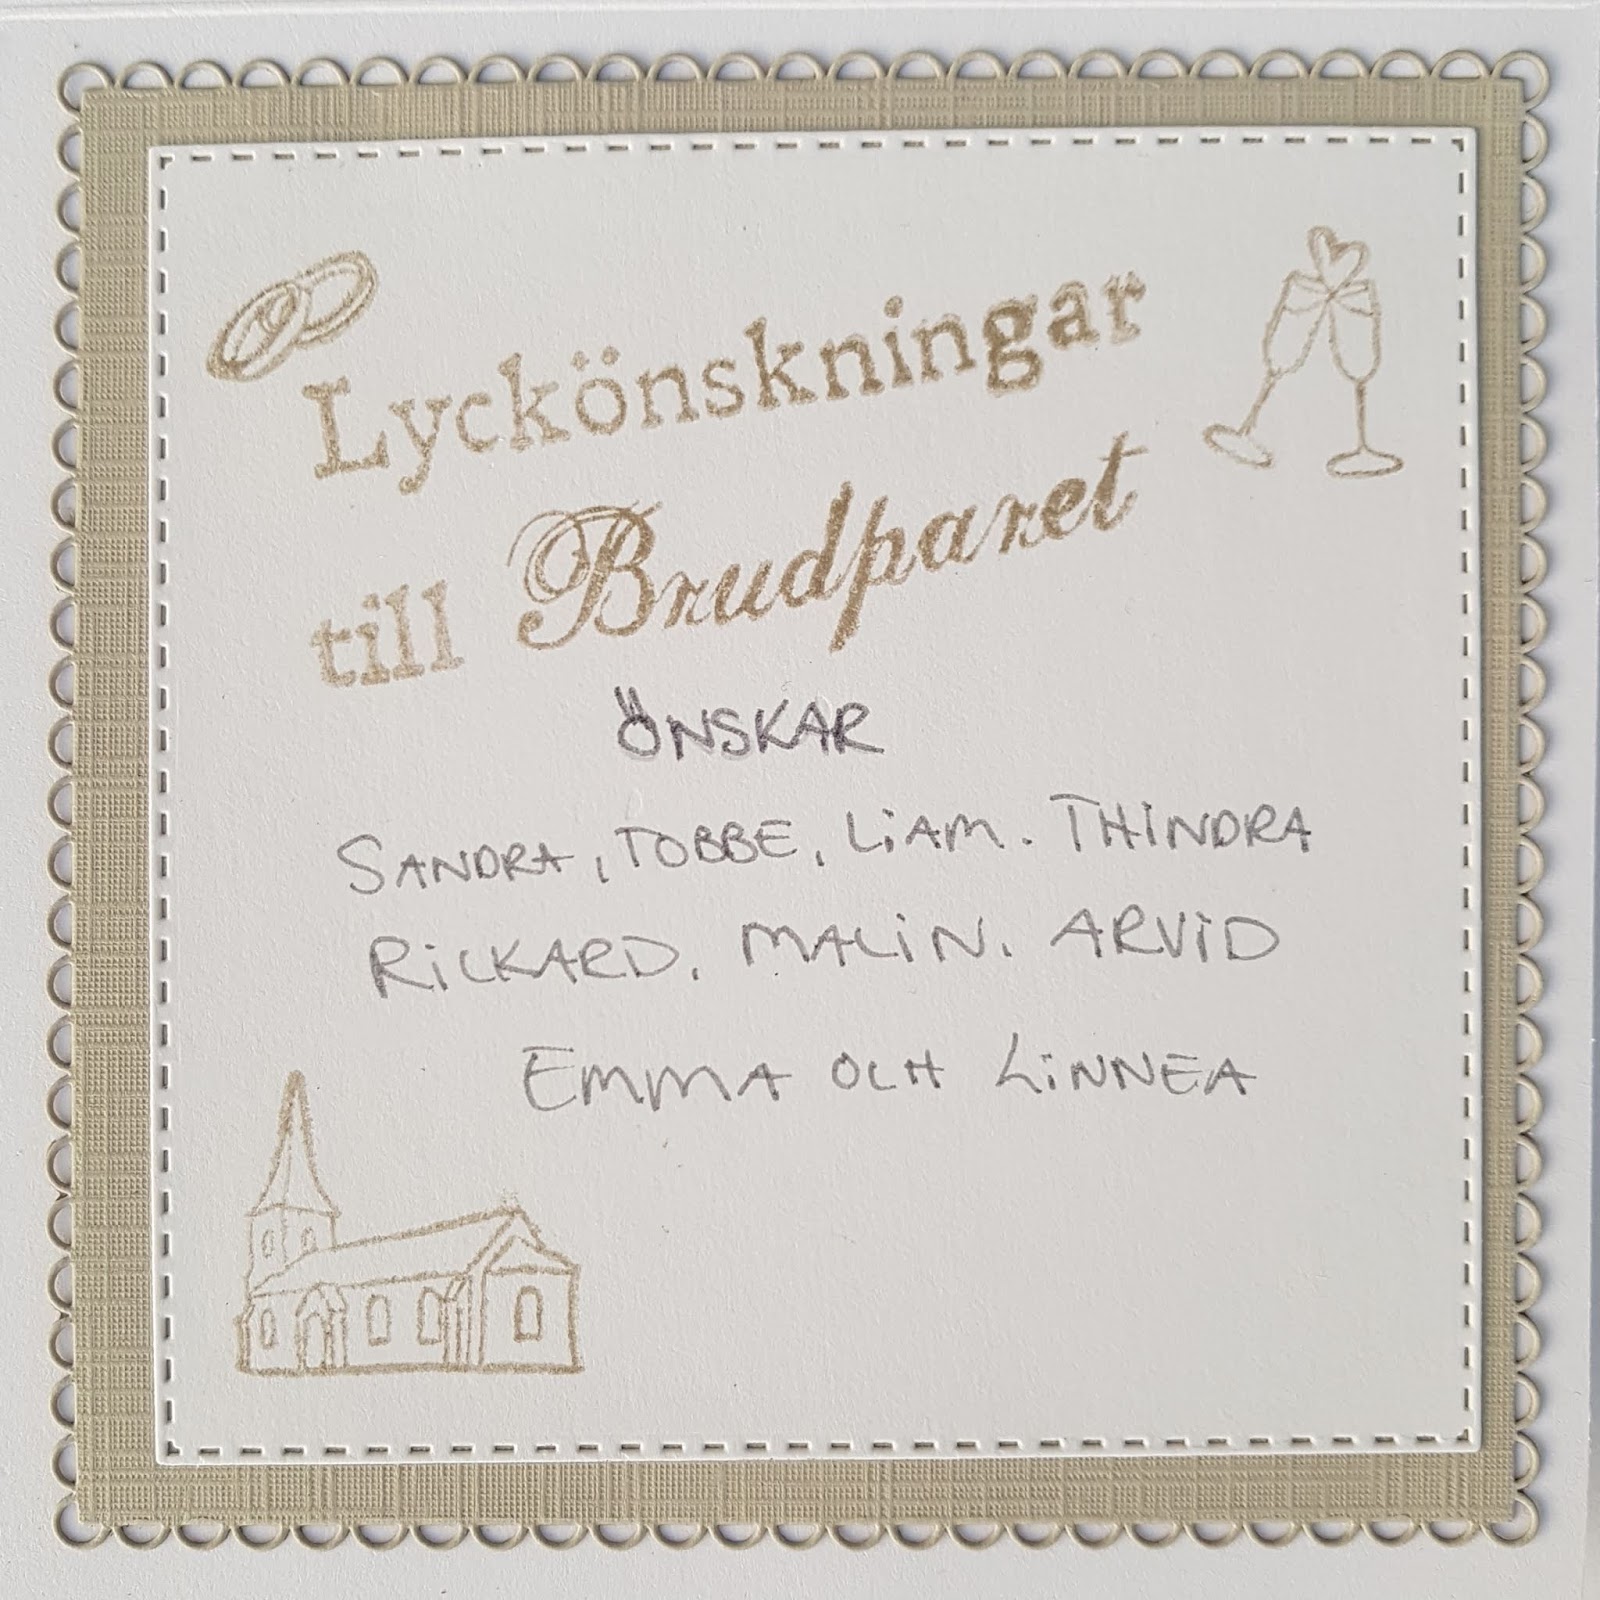 Lyckönskningar
till Brudparet
ÖNSKAR
SANDRA, TOBBE, LiAM. THiNDRA
RiCKARD, MALiN, ARViD
EMMA OCH LiNNEA